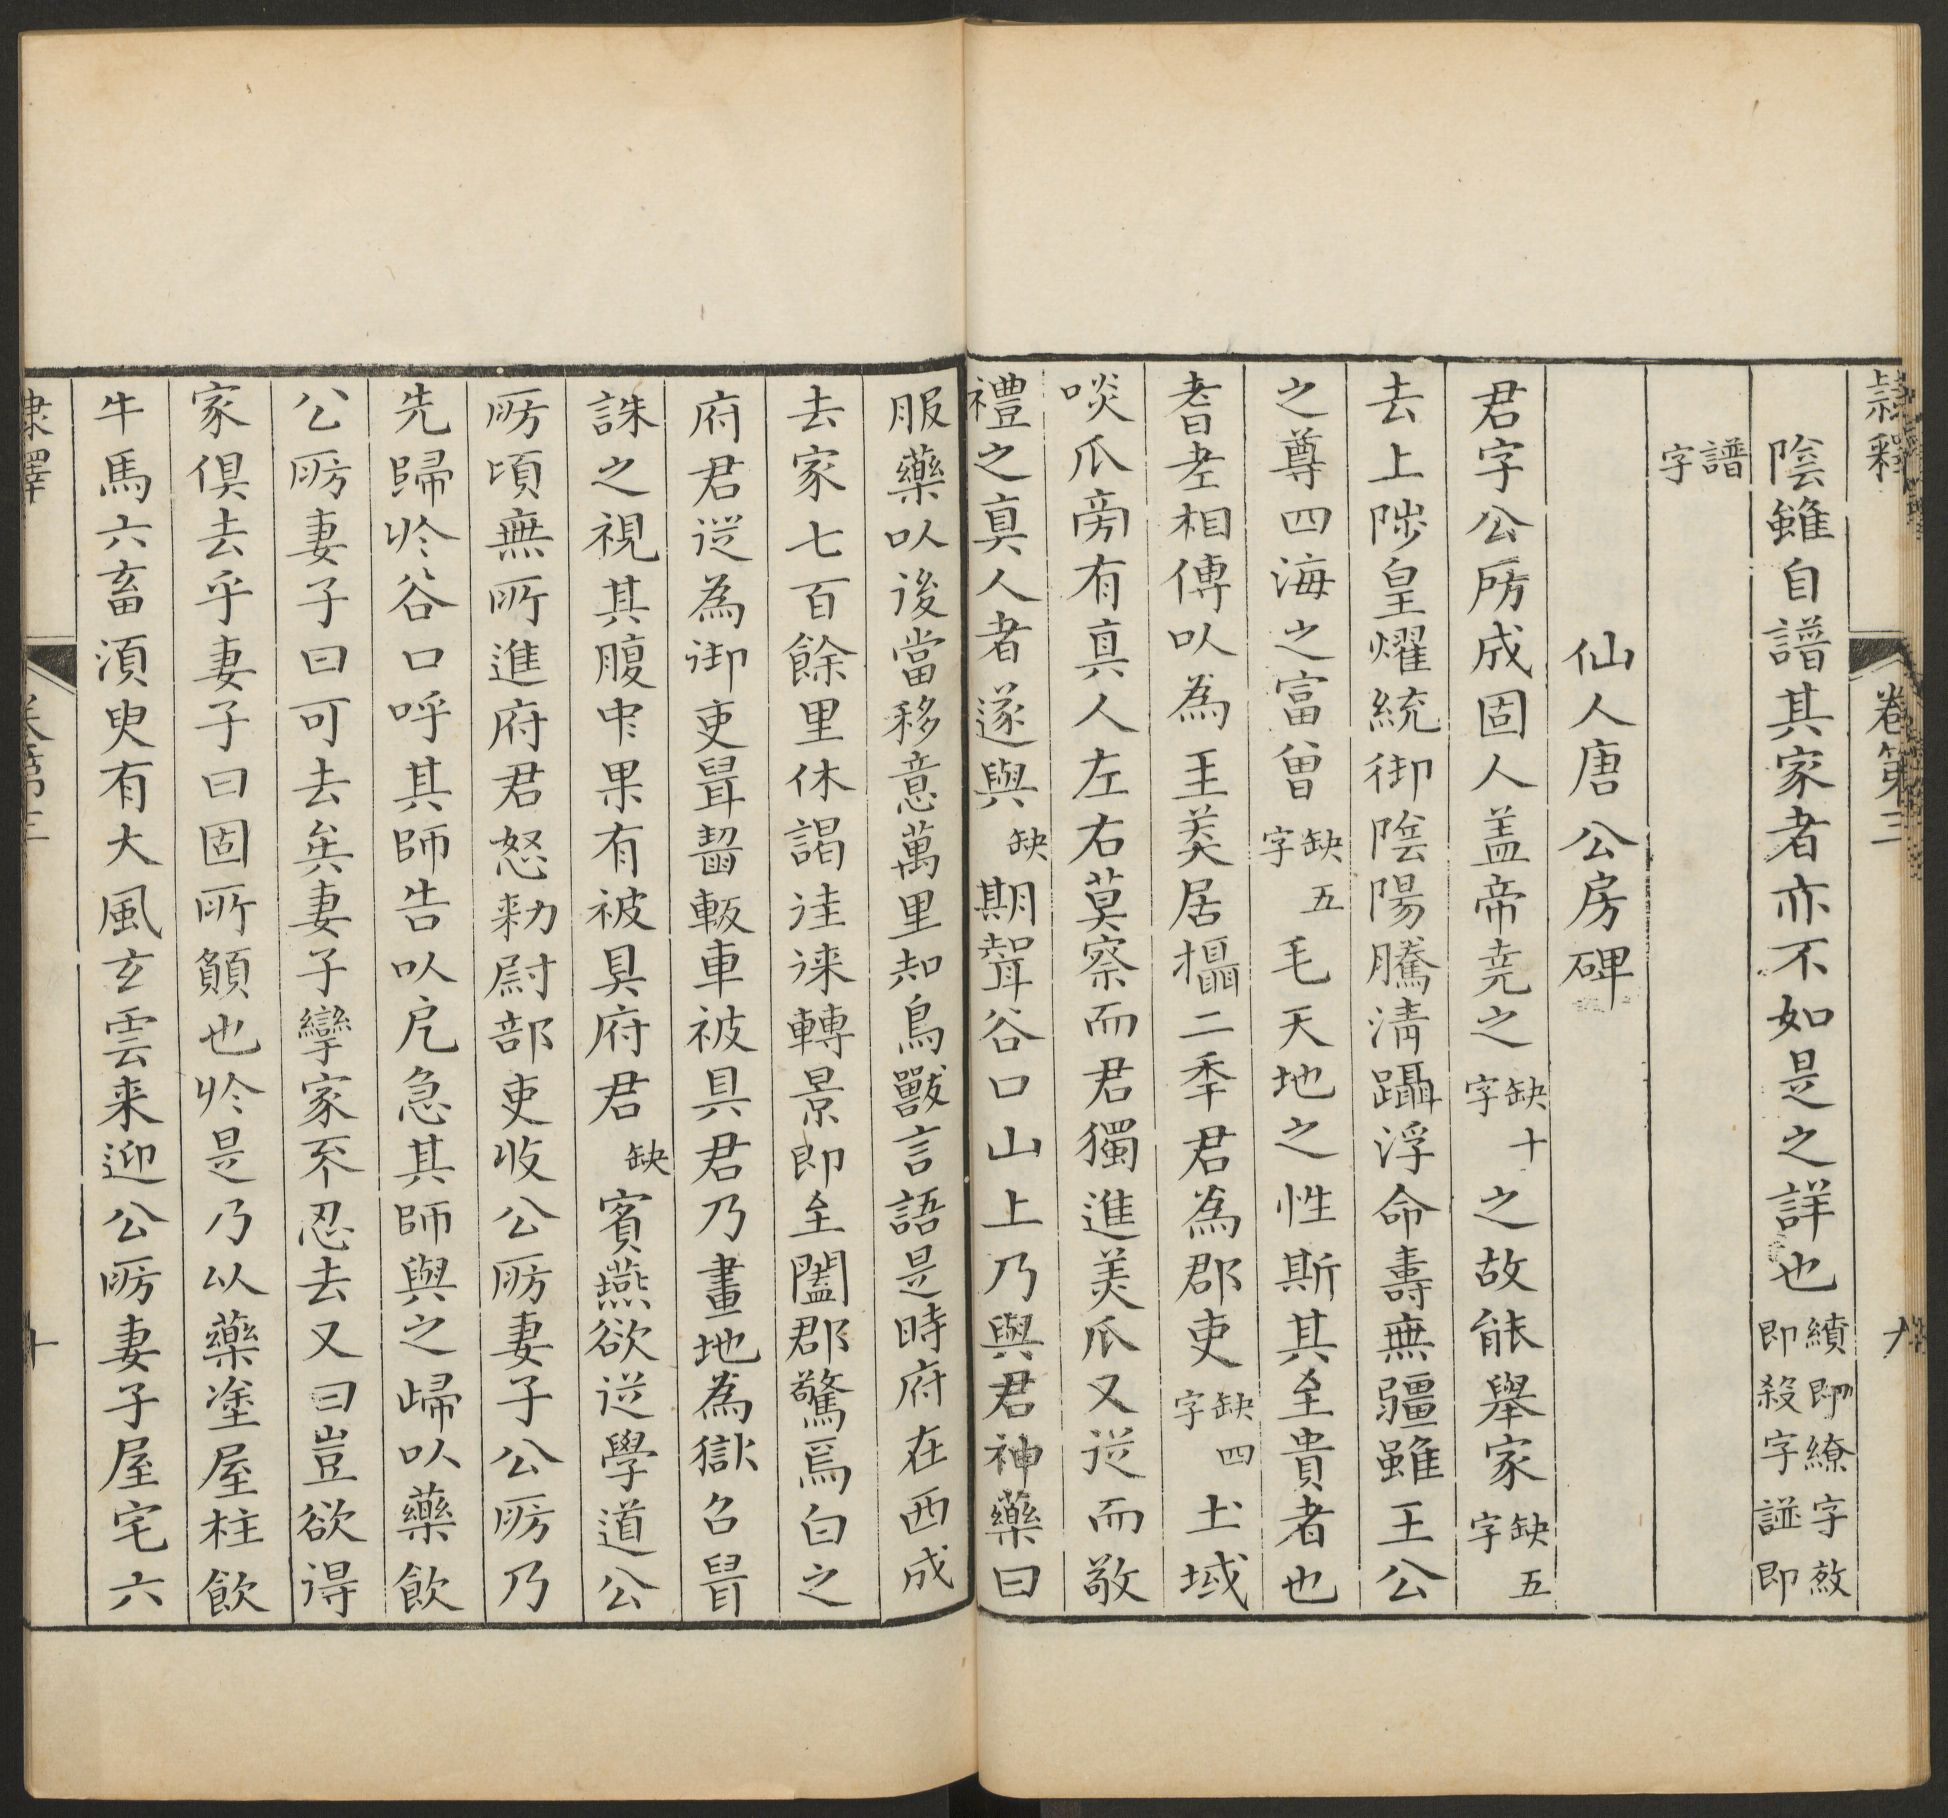 隷釋 卷第三 九
陰雖自譜其家者亦不如是之詳也 績即繚字敥即殺字諩即
譜字
仙人唐公房碑
君字公房成固人盖帝堯之 缺十字 之故能舉家 缺五字
去上陟皇燿統御陰陽騰清躡浮命壽無疆雖王公
之尊四海之富曾 缺五字 毛天地之性斯其至貴者也
耆老相傳以為王莽居攝二年君為郡吏 缺四字 土域
啖瓜旁有真人左右莫察而君獨進美瓜又從而敬
禮之真人者遂與 缺 期聟谷口山上乃與君神藥曰
服藥以後當移意萬里知鳥獸言語是時府在西成
去家七百餘里休謁往徠轉景即至闔郡驚焉白之
府君從為御吏鼠齧軬車被具君乃畫地為獄召鼠
誅之視其腹中果有被具府君 缺 賓燕欲從學道公
房頃無所進府君怒勑尉部吏收公房妻子公房乃
先歸於谷口呼其師告以戹急其師與之歸以藥飲
公房妻子曰可去矣妻子孿家不忍去又曰豈欲得
家俱去乎妻子曰固所願也於是乃以藥塗屋柱飲
牛馬六畜須臾有大風玄雲来迎公房妻子屋宅六
隷釋 卷第三 十